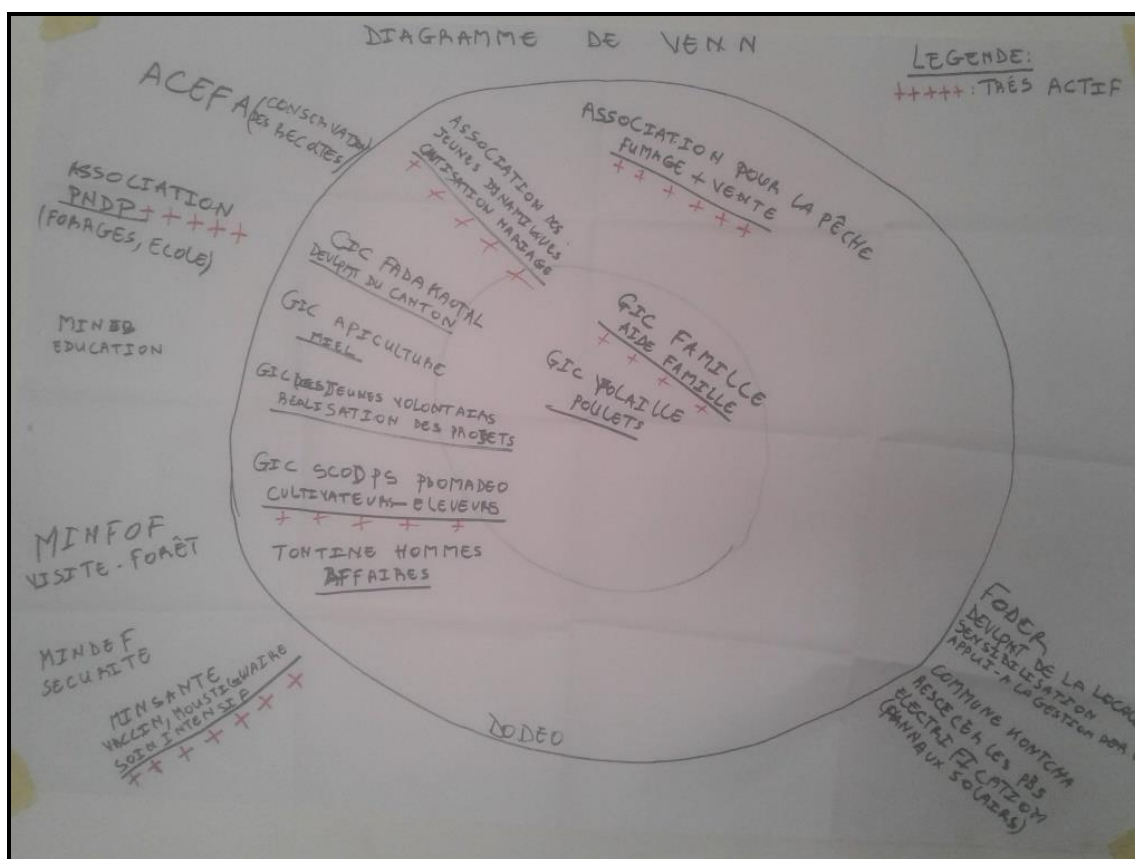 DIAGRAMME DE VENN
LEGENDE:
+++++ : TRÉS ACTIF
ACEFA (CONSERVATION
DES RECOLTES)
ASSOCIATION
PNDP + + + + +
(FORAGES, ECOLE)
MINED
EDUCATION
MINFOF
VISITE - FORÊT
MINDEF
SECURITE
MINSANTE
VACCIN, MOUSTIQUAIRE
SOIN INTENSIF
+ + + + + +
ASSOCIATION DES
JEUNES DYNAMIQUES
COTISATION MARIAGE
+ + + + + +
ASSOCIATION POUR LA PÊCHE
FUMAGE + VENTE
+ + + + + +
GIC FADAKAOTAL
DEVLPMT DU CANTON
GIC APICULTURE
MIEL
GIC DES JEUNES VOLONTAIRS
REALISATION DES PROJETS
GIC SCOOPS PDOMADEO
CULTIVATEURS - ELEVEURS
+ + + + +
TONTINE HOMMES
AFFAIRES
GIC FAMILLE
AIDE FAMILLE
+ + + +
GIC VOLAILLE
POULETS
DODEO
FODER
DEVLPMT DE LA
SENSIBILISATION
APPUI - A LA GESTION
COMMUNE KONTCHA
LES PBS
ELECTRIFICATION
(PANNAUX SOLAIRS)